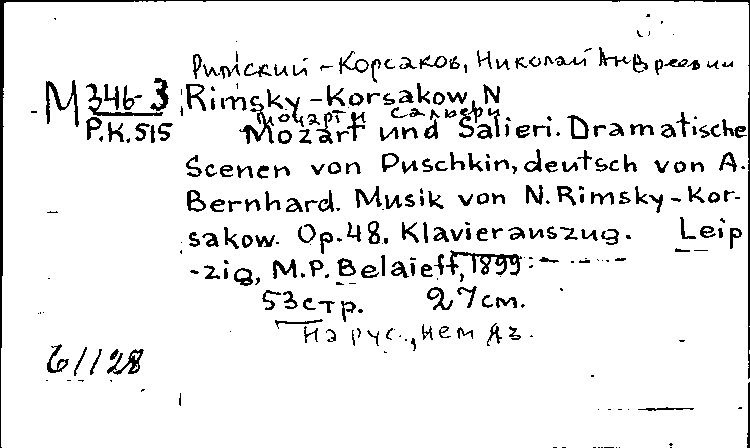 Римский-Корсаков, Николай Андреевич
M 346-3 Rimsky-Korsakow, N
Моцарт и Сальери
Р.К.515 Mozart und Salieri. Dramatische
Scenen von Puschkin, deutsch von A.
Bernhard. Musik von N. Rimsky-Kor-
sakow. Op. 48. Klavierauszug. Leip
-zig, M.P. Belaieff, 1899.
53 стр. 27 см.
На рус., нем яз.
61128